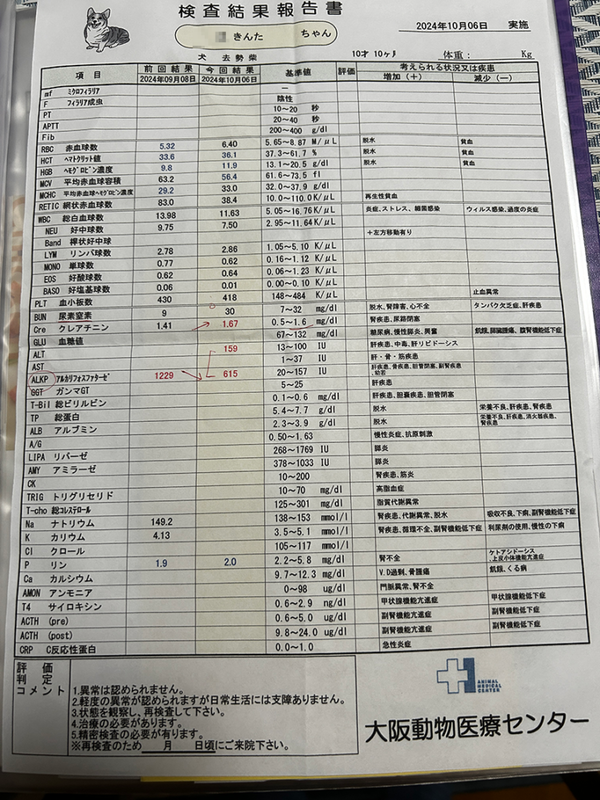 検査結果報告書
2024年10月06日 実施
きんた ちゃん
犬 去勢柴 10才 10ヶ月 体重: Kg
項目 前回結果 2024年09月08日 今回結果 2024年10月06日 基準値 評価 考えられる状況又は疾患 増加(+) 減少(ー)
mf ミクロフィラリア ー
F フィラリア成虫 陰性
PT 10～20 秒
APTT 20～40 秒
Fib 200～400 g/dl
RBC 赤血球数 5.32 6.40 5.65～8.87 M/μL 脱水 貧血
HCT ヘマトクリット値 33.6 36.1 37.3～61.7 % 脱水 貧血
HGB ヘモグロビン濃度 9.8 11.9 13.1～20.5 g/dl 脱水 貧血
MCV 平均赤血球容積 63.2 56.4 61.6～73.5 fl
MCHC 平均赤血球ヘモグロビン濃度 29.2 33.0 32.0～37.9 g/dl
RETIC 網状赤血球数 83.0 38.4 10.0～110.0 K/μL 再生性貧血
WBC 総白血球数 13.98 11.63 5.05～16.76 K/μL 炎症、ストレス、細菌感染 ウィルス感染、過度の炎症
NEU 好中球数 9.75 7.50 2.95～11.64 K/μL
Band 桿状好中球 +左方移動有り
LYM リンパ球数 2.78 2.86 1.05～5.10 K/μL
MONO 単球数 0.77 0.62 0.16～1.12 K/μL
EOS 好酸球数 0.62 0.64 0.06～1.23 K/μL
BASO 好塩基球数 0.06 0.01 0.00～0.10 K/μL
PLT 血小板数 430 418 148～484 K/μL 止血異常
BUN 尿素窒素 9 30 7～32 mg/dl 脱水、腎障害、心不全 タンパク欠乏症、肝疾患
Cre クレアチニン 1.41 1.67 0.5～1.6 mg/dl 腎疾患、尿路閉塞
GLU 血糖値 67～132 mg/dl 糖尿病、慢性膵炎、興奮 飢餓、膵臓腫瘍、副腎機能低下症
ALT 159 13～100 IU 肝疾患、中毒、肝リピドーシス
AST 1～37 IU 肝・骨・筋疾患
ALKP アルカリフォスファターゼ 1229 615 20～157 IU 肝疾患、骨疾患、胆管閉塞、副腎疾患、幼若
GGT ガンマGT 5～25 肝疾患
T-Bil 総ビリルビン 0.1～0.6 mg/dl 肝疾患、胆嚢疾患、胆管閉塞
TP 総蛋白 5.4～7.7 g/dl 脱水 栄養不良、肝疾患、腎疾患
ALB アルブミン 2.3～3.9 g/dl 脱水 栄養不良、肝疾患、消火器疾患、腎疾患
A/G 0.50～1.63 慢性炎症、抗原刺激
LIPA リパーゼ 268～1769 IU 膵炎
AMY アミラーゼ 378～1033 IU 膵炎
CK 10～200 腎疾患、筋炎
TRIG トリグリセリド 10～70 mg/dl 高脂血症
T-cho 総コレステロール 125～301 mg/dl 脂質代謝異常
Na ナトリウム 149.2 138～153 mmol/l 腎疾患、代謝異常、脱水 吸収不良、下痢、副腎機能低下症
K カリウム 4.13 3.5～5.1 mmol/l 腎疾患、循環不全、副腎機能低下症 利尿剤の使用、慢性の下痢
Cl クロール 105～117 mmol/l
P リン 1.9 2.0 2.2～5.8 mg/dl 腎不全 ケトアシドーシス、上皮小体機能亢進症
Ca カルシウム 9.7～12.3 mg/dl V.D過剰、骨腫瘍 飢餓、くる病
AMON アンモニア 0～98 ug/dl 門脈異常、腎不全
T4 サイロキシン 0.6～2.9 ng/dl 甲状腺機能亢進症 甲状腺機能低下症
ACTH (pre) 0.6～5.0 ug/dl 副腎機能亢進症 副腎機能低下症
ACTH (post) 9.8～24.0 ug/dl 副腎機能亢進症 副腎機能低下症
CRP C反応性蛋白 0.0～1.0 急性炎症
評価
判定
コメント
1.異常は認められません。
2.軽度の異常が認められますが日常生活には支障ありません。
3.状態を観察し、再検査して下さい。
4.治療の必要があります。
5.精密検査の必要が有ります。
※再検査のため 月 日頃にご来院下さい。
ANIMAL MEDICAL CENTER
大阪動物医療センター